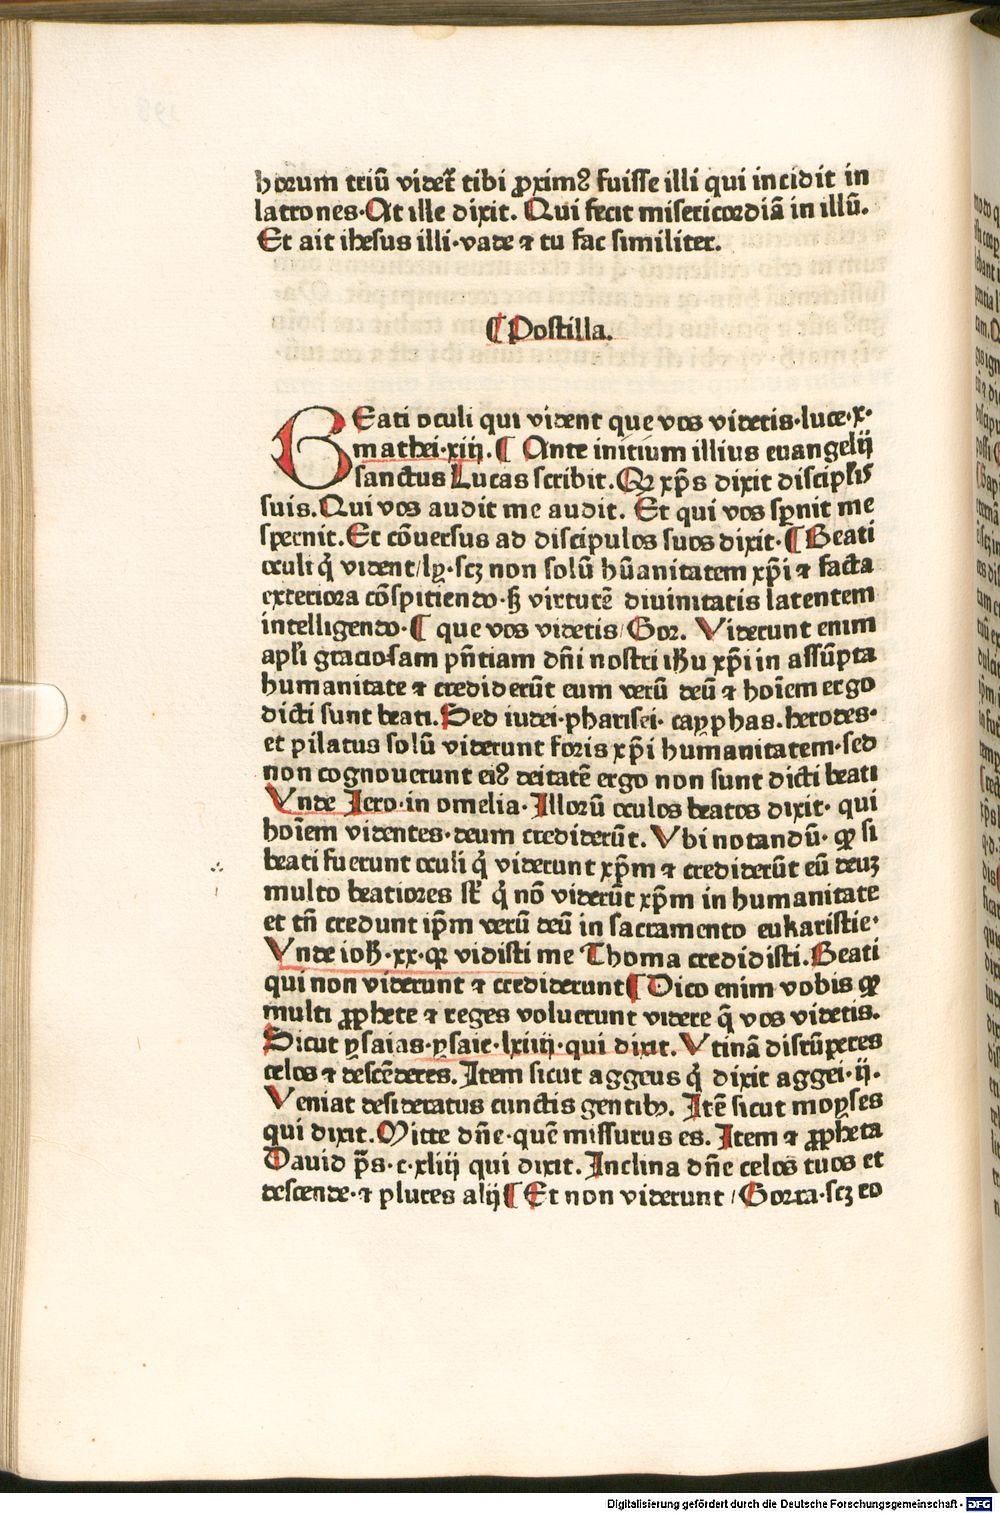 horum triū videt᷑ tibi ꝓximꝰ fuisse illi qui incidit in
latrones·At ille dixit. Qui fecit misericordiā in illū.
Et ait ihesus illi·vade ⁊ tu fac similiter.
¶Postilla.
BEati oculi qui vident que vos videtis·luce·x·
mathei·xiij.¶ Ante inicium illius euangelij
sanctus Lucas scribit. Qꝛ xp̄s dixit discipl̓is
suis. Qui vos audit me audit. Et qui vos sp̱nit me
spernit. Et cōuersus ad discipulos suos dixit·¶Beati
oculi q̇ vident/ly̱·scꝫ non solū hūanitatem xp̄i ⁊ facta
exteriora cōspitiendo·ꝭ virtutē diuinitatis latentem
intelligendo·¶ que vos videtis/Gor. Viderunt enim
apl̓i graciosam pn̄tiam dn̄i nostri iħu xp̄i in assūpta
humanitate ⁊ crediderūt eum verū deū ⁊ hoīem ergo
dicti sunt beati. Sed iudei·pharisei· cayphas. herodes·
et pilatus solū viderunt foris xp̄i humanitatem·sed
non cognouerunt eiꝰ deitatē ergo non sunt dicti beati
Vnde Jero·in omelia·Illorū oculos beatos dixit· qui
hoīem videntes·deum crediderūt. Vbi notandū· ꝙ si
beati fuerunt oculi q̇ viderunt xp̄m ⁊ crediderūt eū deuꝫ
multo beatiores st̄ q̇ nō viderūt xp̄m in humanitate
et tn̄ credunt ip̄m verū deū in sacramento eukaristie·
Vnde ioħ·xx·qꝛ vidisti me Thoma credidisti. Beati
qui non viderunt ⁊ crediderunt¶Dico enim vobis ꝙ
multi ꝓphete ⁊ reges voluerunt videre q̄ vos videtis.
Sicut ysaias·ysaie·lxiiij·qui dixit. Vtinā disrūperes
celos ⁊ descēderes. Item sicut aggeus q̇ dixit aggei·ij·
Veniat desideratus cunctis gentibꝫ. Itē sicut moyses
qui dixit. Mitte dn̄e·quē missurus es. Item ⁊ ꝓpheta
Dauid p̄s·c·xliij qui dixit. Inclina dn̄e celos tuos et
descende·⁊ plures alij¶Et non viderunt/Gorra·scꝫ eo
Digitalisierung gefördert durch die Deutsche Forschungsgemeinschaft - DFG